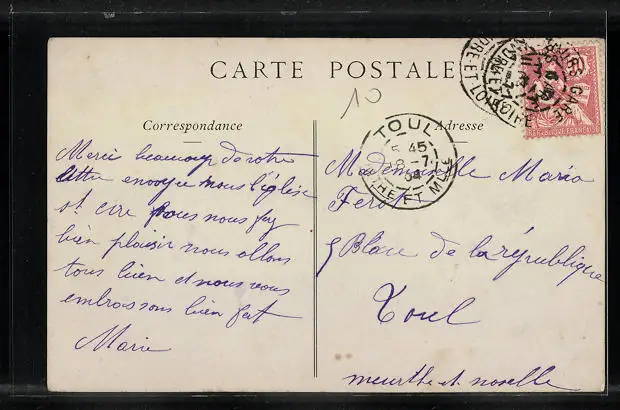 CARTE POSTALE
10
Correspondance
Merci beaucoup de votre
envoyez nous l'église
st cire nous nous fay
bien plaisir nous allons
tous bien et nous vous
embrassons bien fort
Marie
Adresse
Mademoiselle Maria
Place de la république
Toul
meurthe et moselle
TOUL
5 45
8 -7
04
THE ET MLE
TOURS GARE
INDRE-ET-LOIRE
RÉPUBLIQUE FRANÇAISE